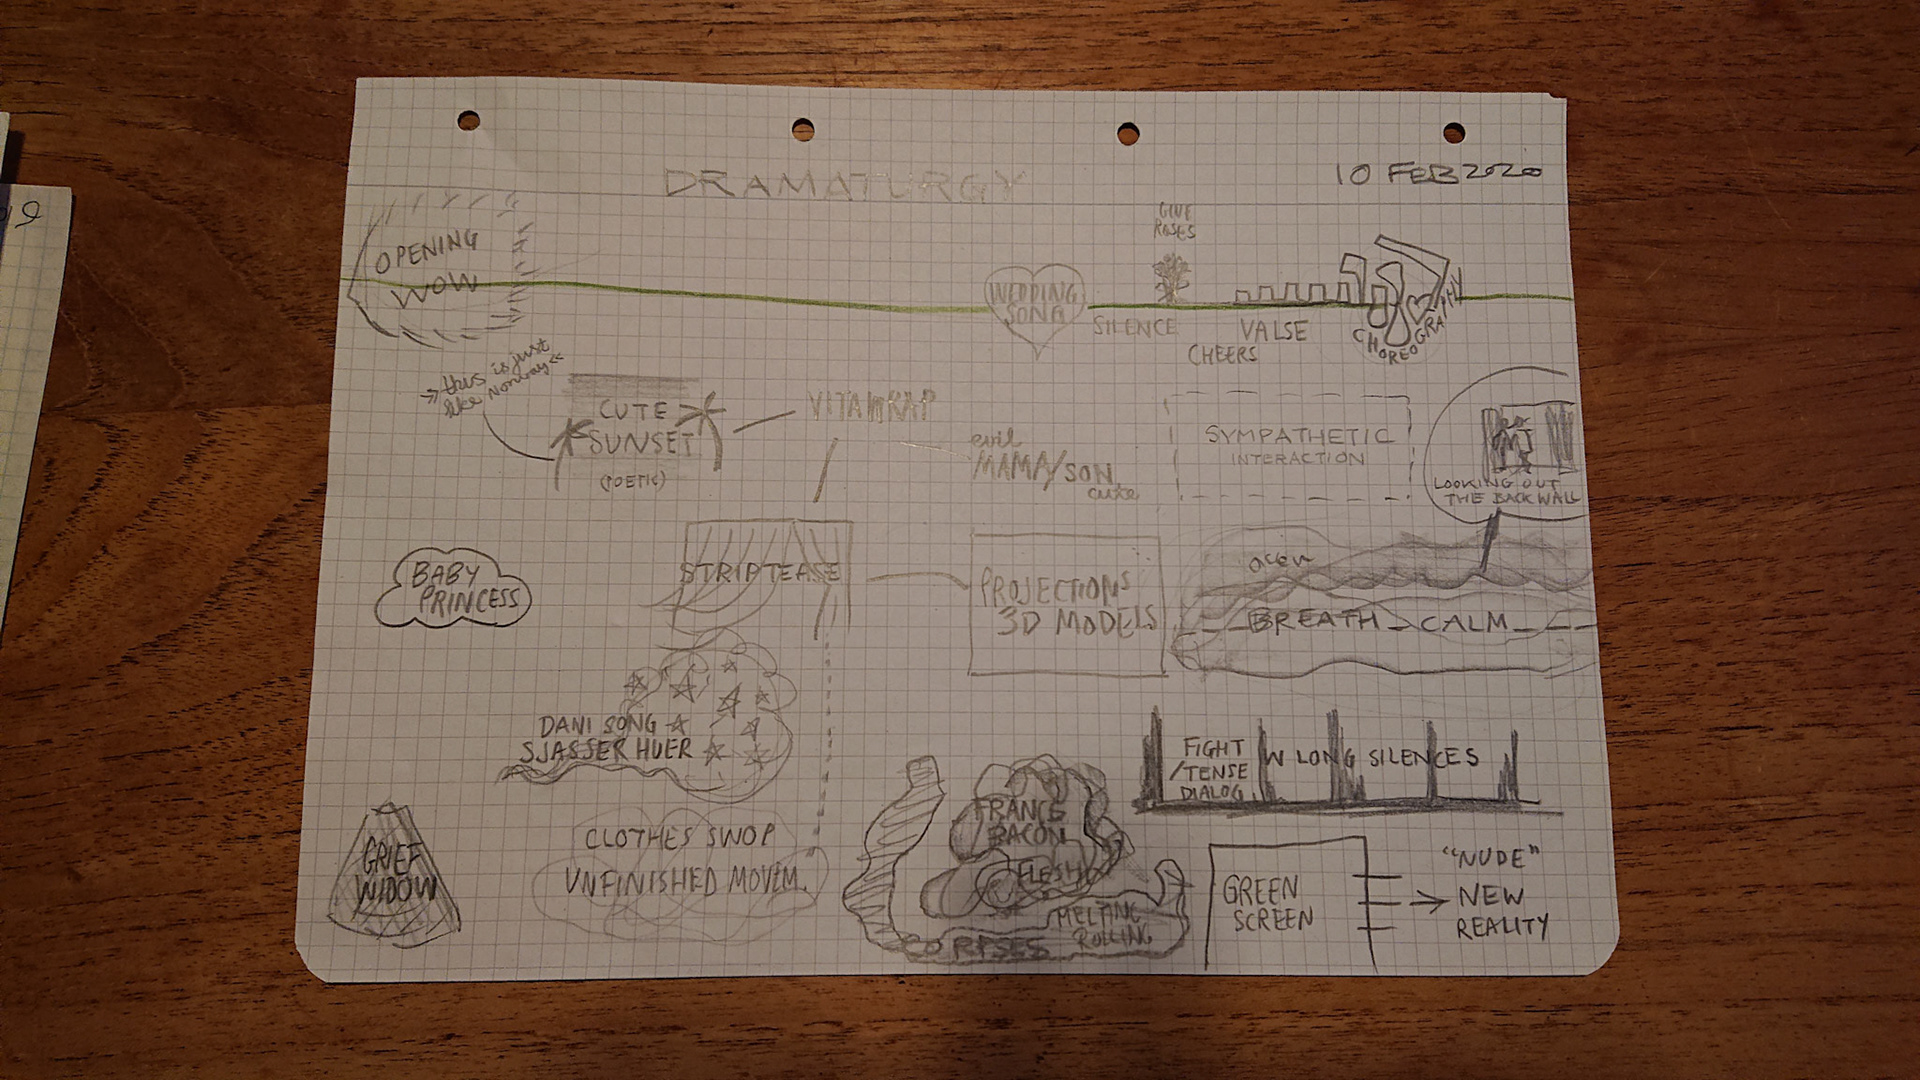 DRAMATURGY
10 FEB 2020
OPENING
WOW
WEDDING
SONG
GIVE
ROSES
SILENCE
CHEERS
VALSE
CHOREOGRAPHY
→ this is just
like Norway ←
CUTE
SUNSET
(POETIC)
VITAWRAP
evil
MAMA/SON
cute
SYMPATHETIC
INTERACTION
LOOKING OUT
THE BACK WALL
BABY
PRINCESS
STRIPTEASE
PROJECTIONS
3D MODELS
BREATH CALM
DANI SONG
SJASSER HUER
FIGHT
/TENSE
DIALOG
W LONG SILENCES
GRIEF
WIDOW
CLOTHES SWOP
UNFINISHED MOVEM.
FRANCE
BACON
FLESH
MELTING
ROLLING
CORPSES
GREEN
SCREEN
→
"NUDE"
NEW
REALITY